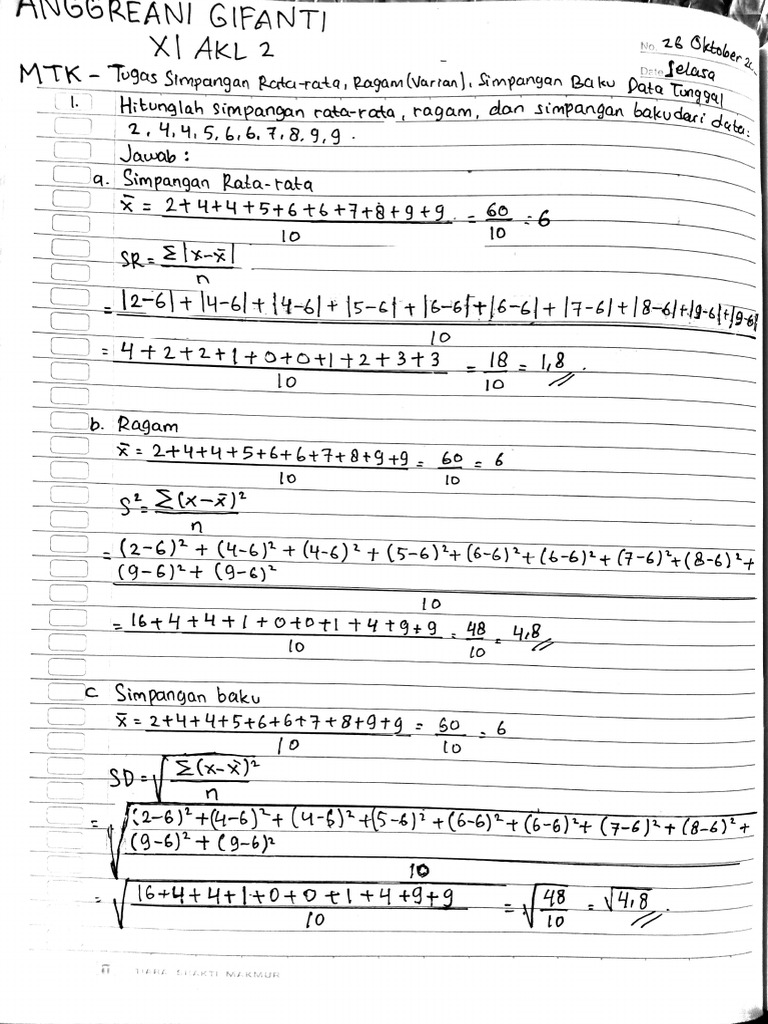 ANGGREANI GIFANTI
XI AKL 2
No. 26 Oktober
Date Selasa
MTK - Tugas Simpangan Rata-rata, Ragam (Varian), Simpangan Baku Data Tunggal
1. Hitunglah simpangan rata-rata, ragam, dan simpangan baku dari data:
2, 4, 4, 5, 6, 6, 7, 8, 9, 9.
Jawab:
a. Simpangan Rata-rata
x̄ = 2+4+4+5+6+6+7+8+9+9 = 60 = 6
10 10
SR = Σ|x-x̄|
n
= |2-6| + |4-6| + |4-6| + |5-6| + |6-6| + |6-6| + |7-6| + |8-6| + |9-6| + |9-6|
10
= 4+2+2+1+0+0+1+2+3+3 = 18 = 1,8.
10 10
b. Ragam
x̄ = 2+4+4+5+6+6+7+8+9+9 = 60 = 6
10 10
S² = Σ(x-x̄)²
n
= (2-6)² + (4-6)² + (4-6)² + (5-6)² + (6-6)² + (6-6)² + (7-6)² + (8-6)² +
(9-6)² + (9-6)²
10
= 16+4+4+1+0+0+1+4+9+9 = 48 = 4,8
10 10
c Simpangan baku
x̄ = 2+4+4+5+6+6+7+8+9+9 = 60 = 6
10 10
SD = √Σ(x-x̄)²
n
= √(2-6)² + (4-6)² + (4-6)² + (5-6)² + (6-6)² + (6-6)² + (7-6)² + (8-6)² +
(9-6)² + (9-6)²
10
= √16+4+4+1+0+0+1+4+9+9 = √48 = √4,8.
10 10
MAKMUR